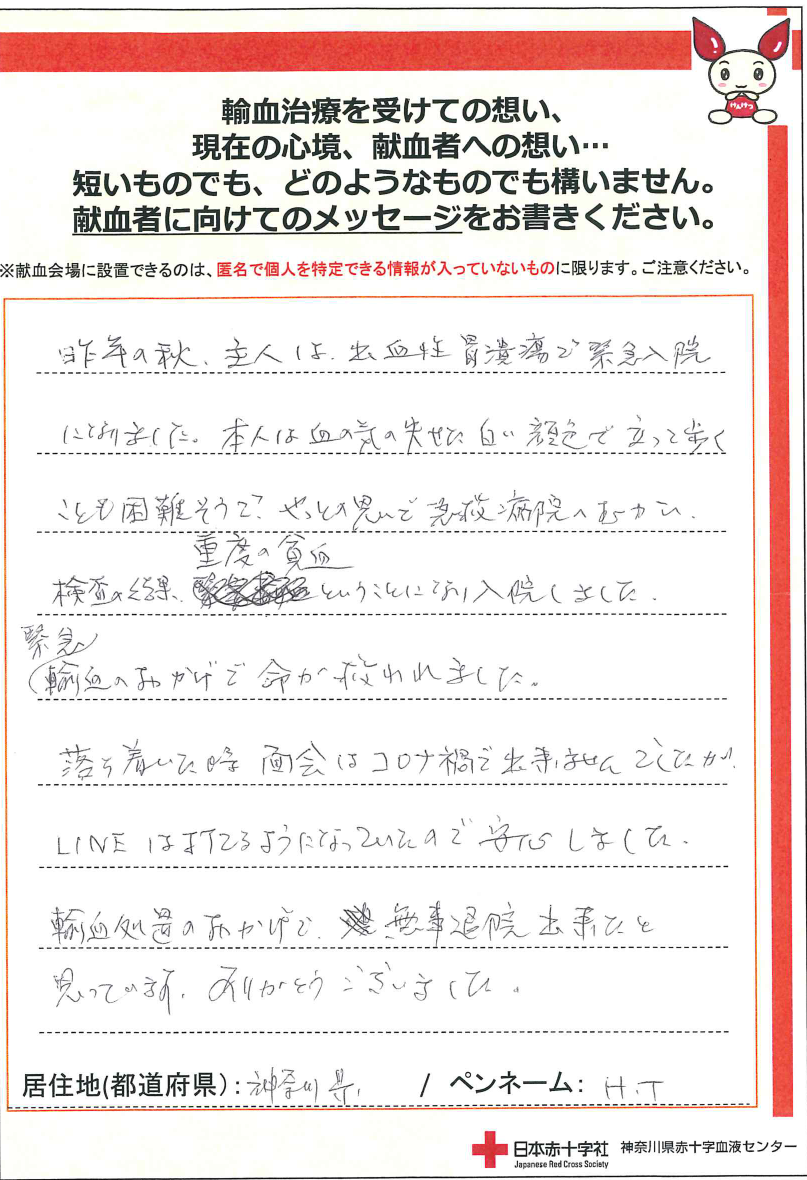 けんけつ
輸血治療を受けての想い、
現在の心境、献血者への想い…
短いものでも、どのようなものでも構いません。
献血者に向けてのメッセージをお書きください。
※献血会場に設置できるのは、匿名で個人を特定できる情報が入っていないものに限ります。ご注意ください。
昨年の秋、主人は、出血性胃潰瘍で緊急入院
になりました。本人は血の気の失せた白い顔色で立って歩く
ことも困難そうで、やっとの思いで救急病院へむかい、
重度の貧血
検査の結果、ということになり入院しました。
緊急
輸血のおかげで命が救われました。
落ち着いた時面会はコロナ禍で出来ませんでしたが、
LINEは打てるようになっていたので安心しました。
輸血処置のおかげで、無事退院出来たと
思っています。ありがとうございました。
居住地(都道府県):神奈川県 / ペンネーム: H.T
日本赤十字社 神奈川県赤十字血液センター
Japanese Red Cross Society